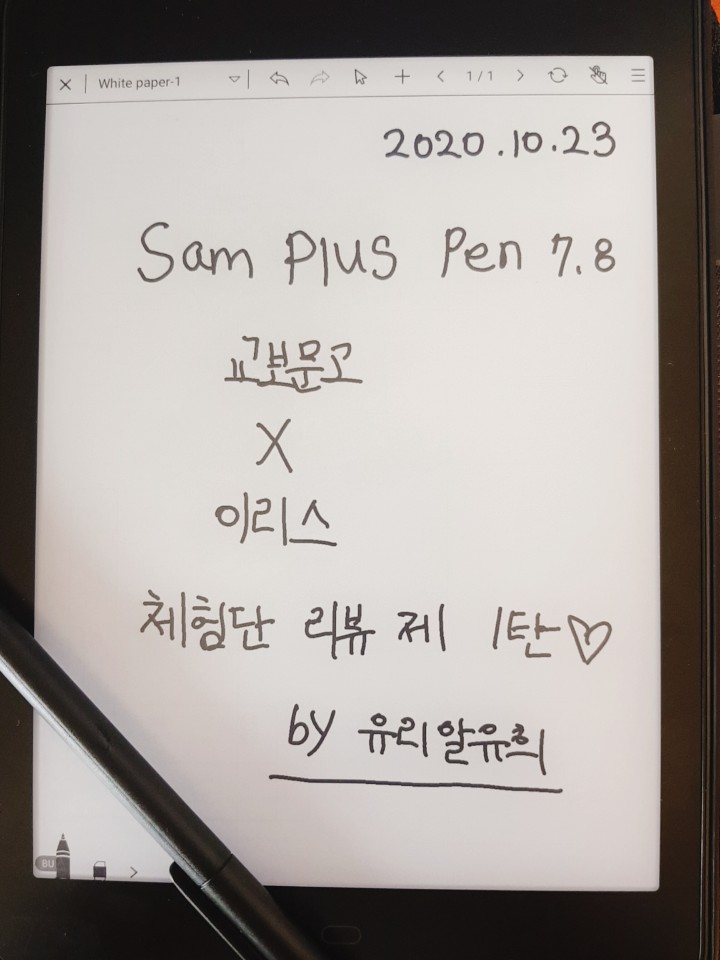 White paper-1
1/1
2020.10.23
Sam Plus Pen 7.8
교보문고
X
이리스
체험단 리뷰 제 1탄♡
by 유리알유희
BU